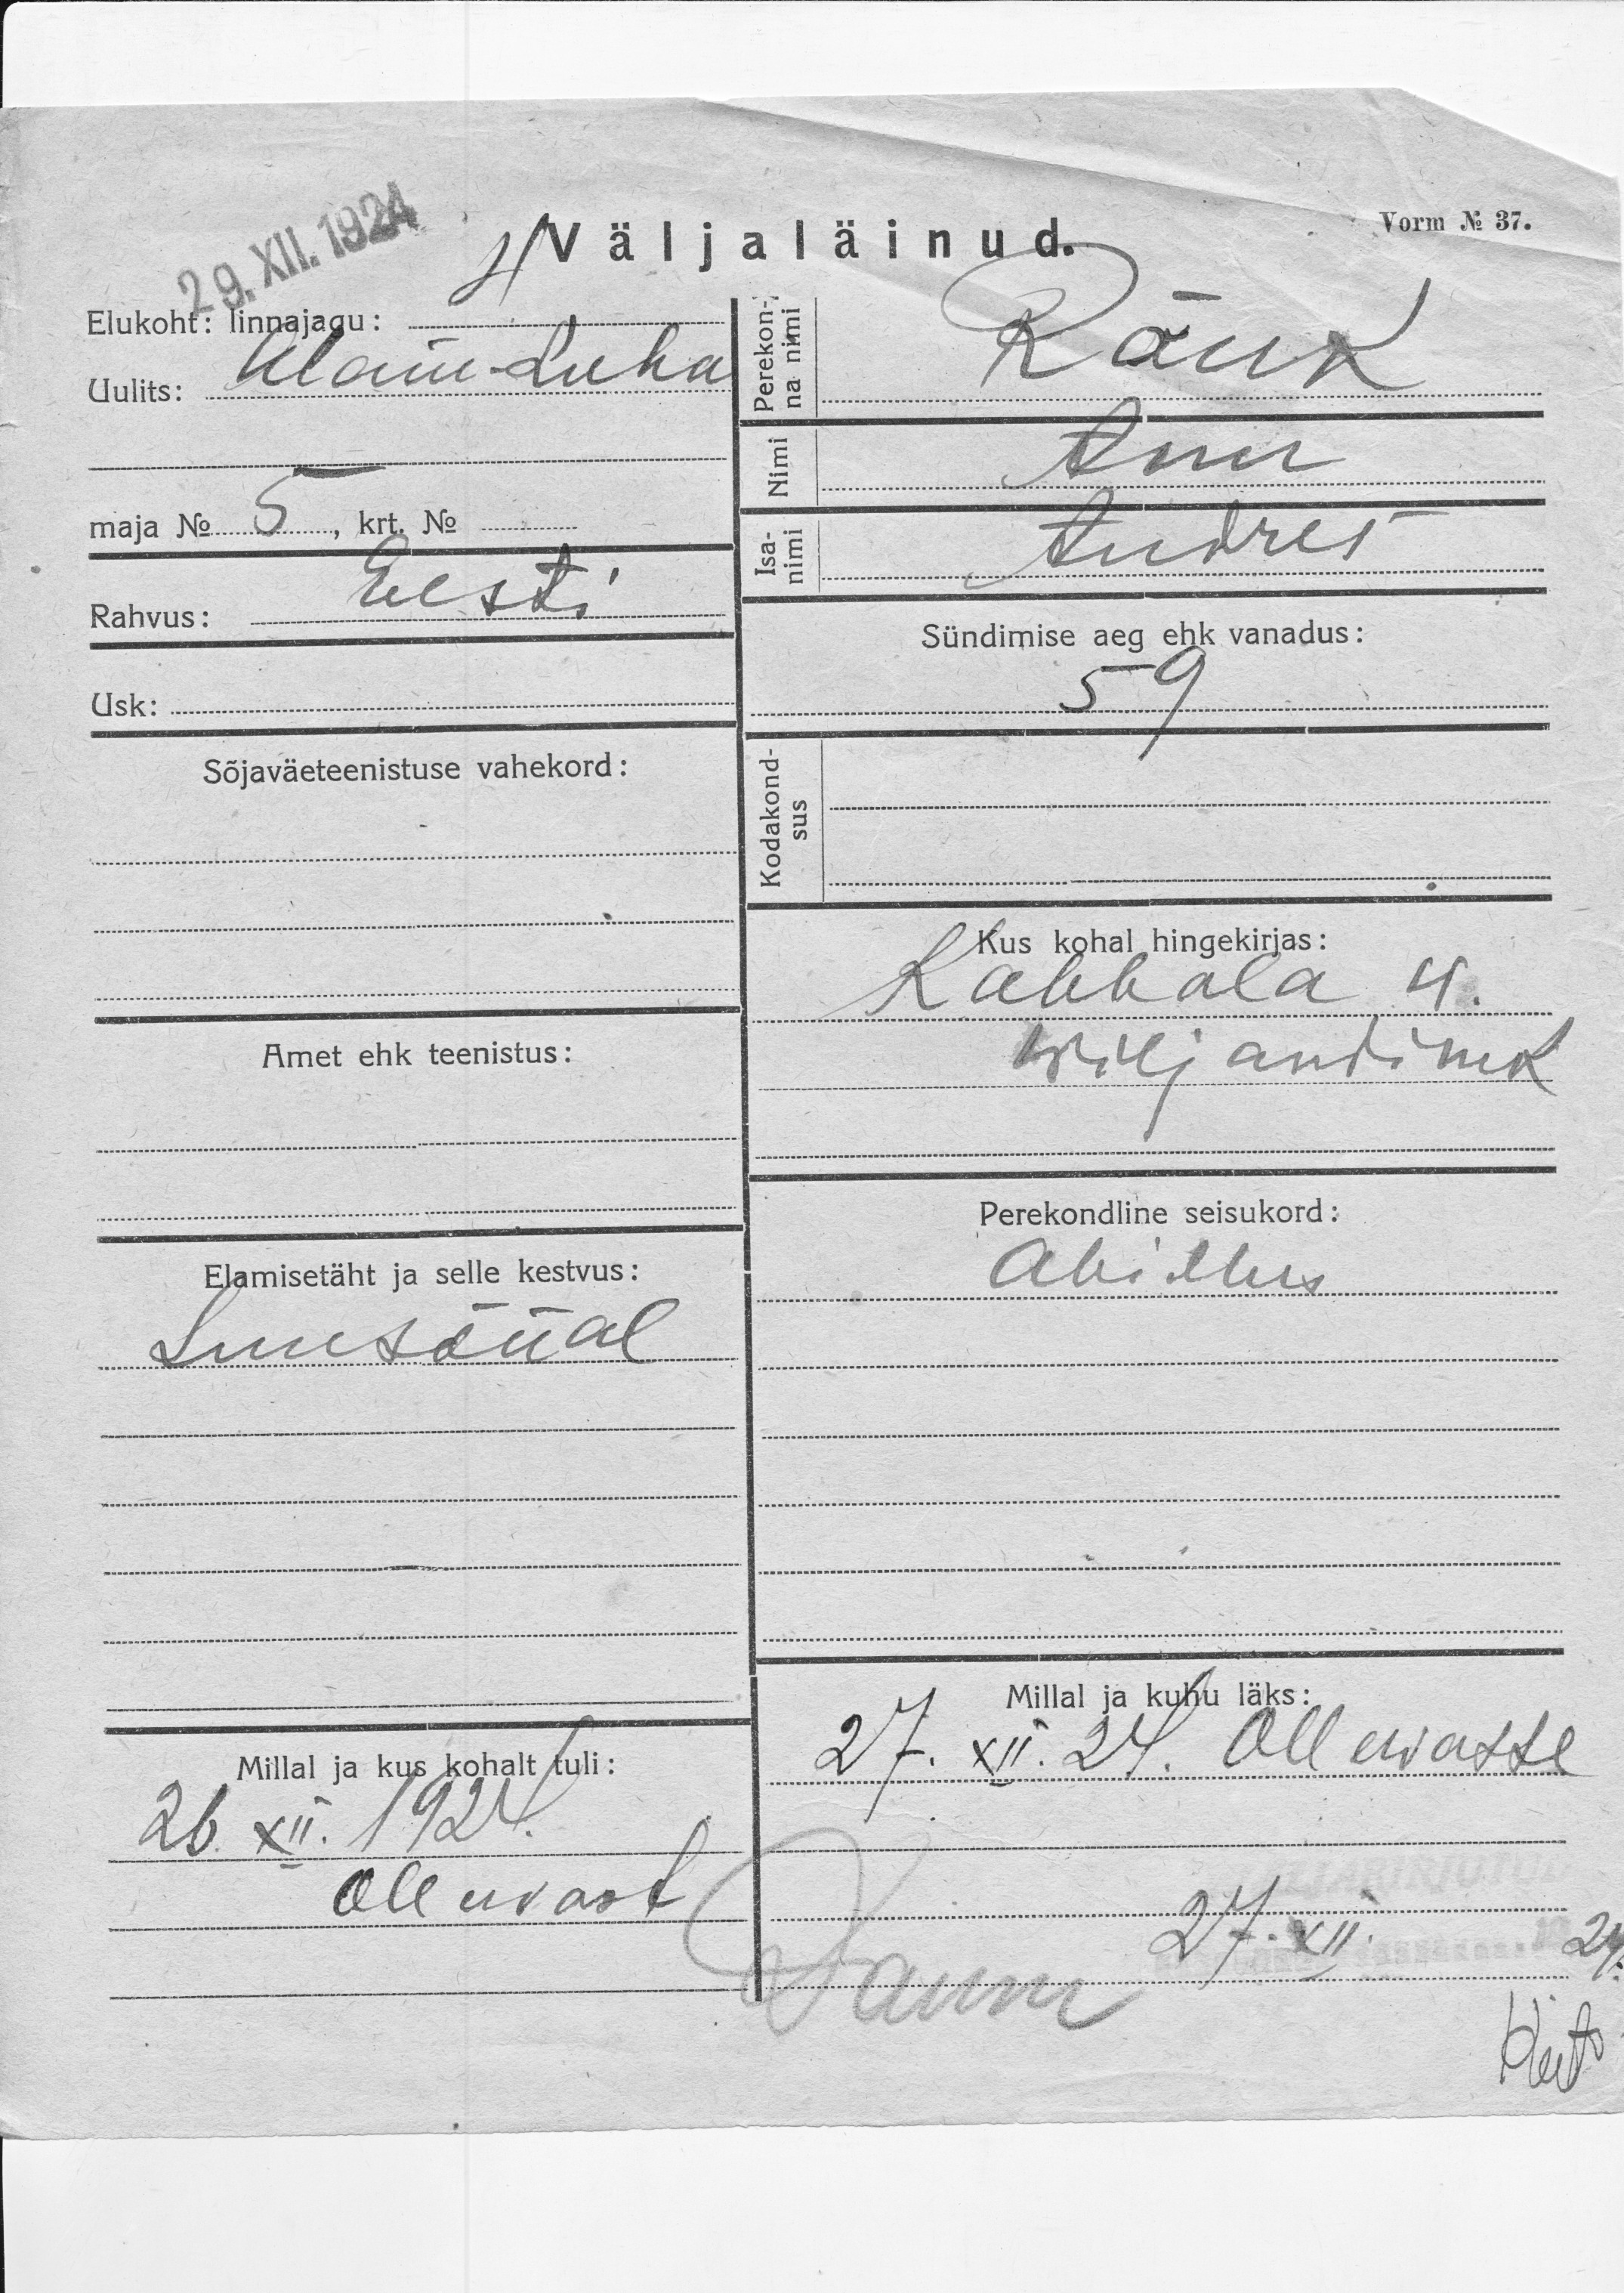 29. XII. 1924
Väljaläinud.
Vorm № 37.
Elukoht: linnajagu:
Uulits: Alam-Luha
maja № 5, krt. №
Rahvus: Eesti
Usk:
Sõjaväeteenistuse vahekord:
Amet ehk teenistus:
Elamisetäht ja selle kestvus:
Suusõnal
Millal ja kus kohalt tuli:
26. XII. 1924.
Olluvast
Perekonna nimi
Ränk
Nimi
Ann
Isanimi
Andres
Sündimise aeg ehk vanadus:
59
Kodakondsus
Kus kohal hingekirjas:
Kabbala v.
Wiljandimk
Perekondline seisukord:
Abielus
Millal ja kuhu läks:
27. XII. 24. Olluvasse
27. XII. 24.